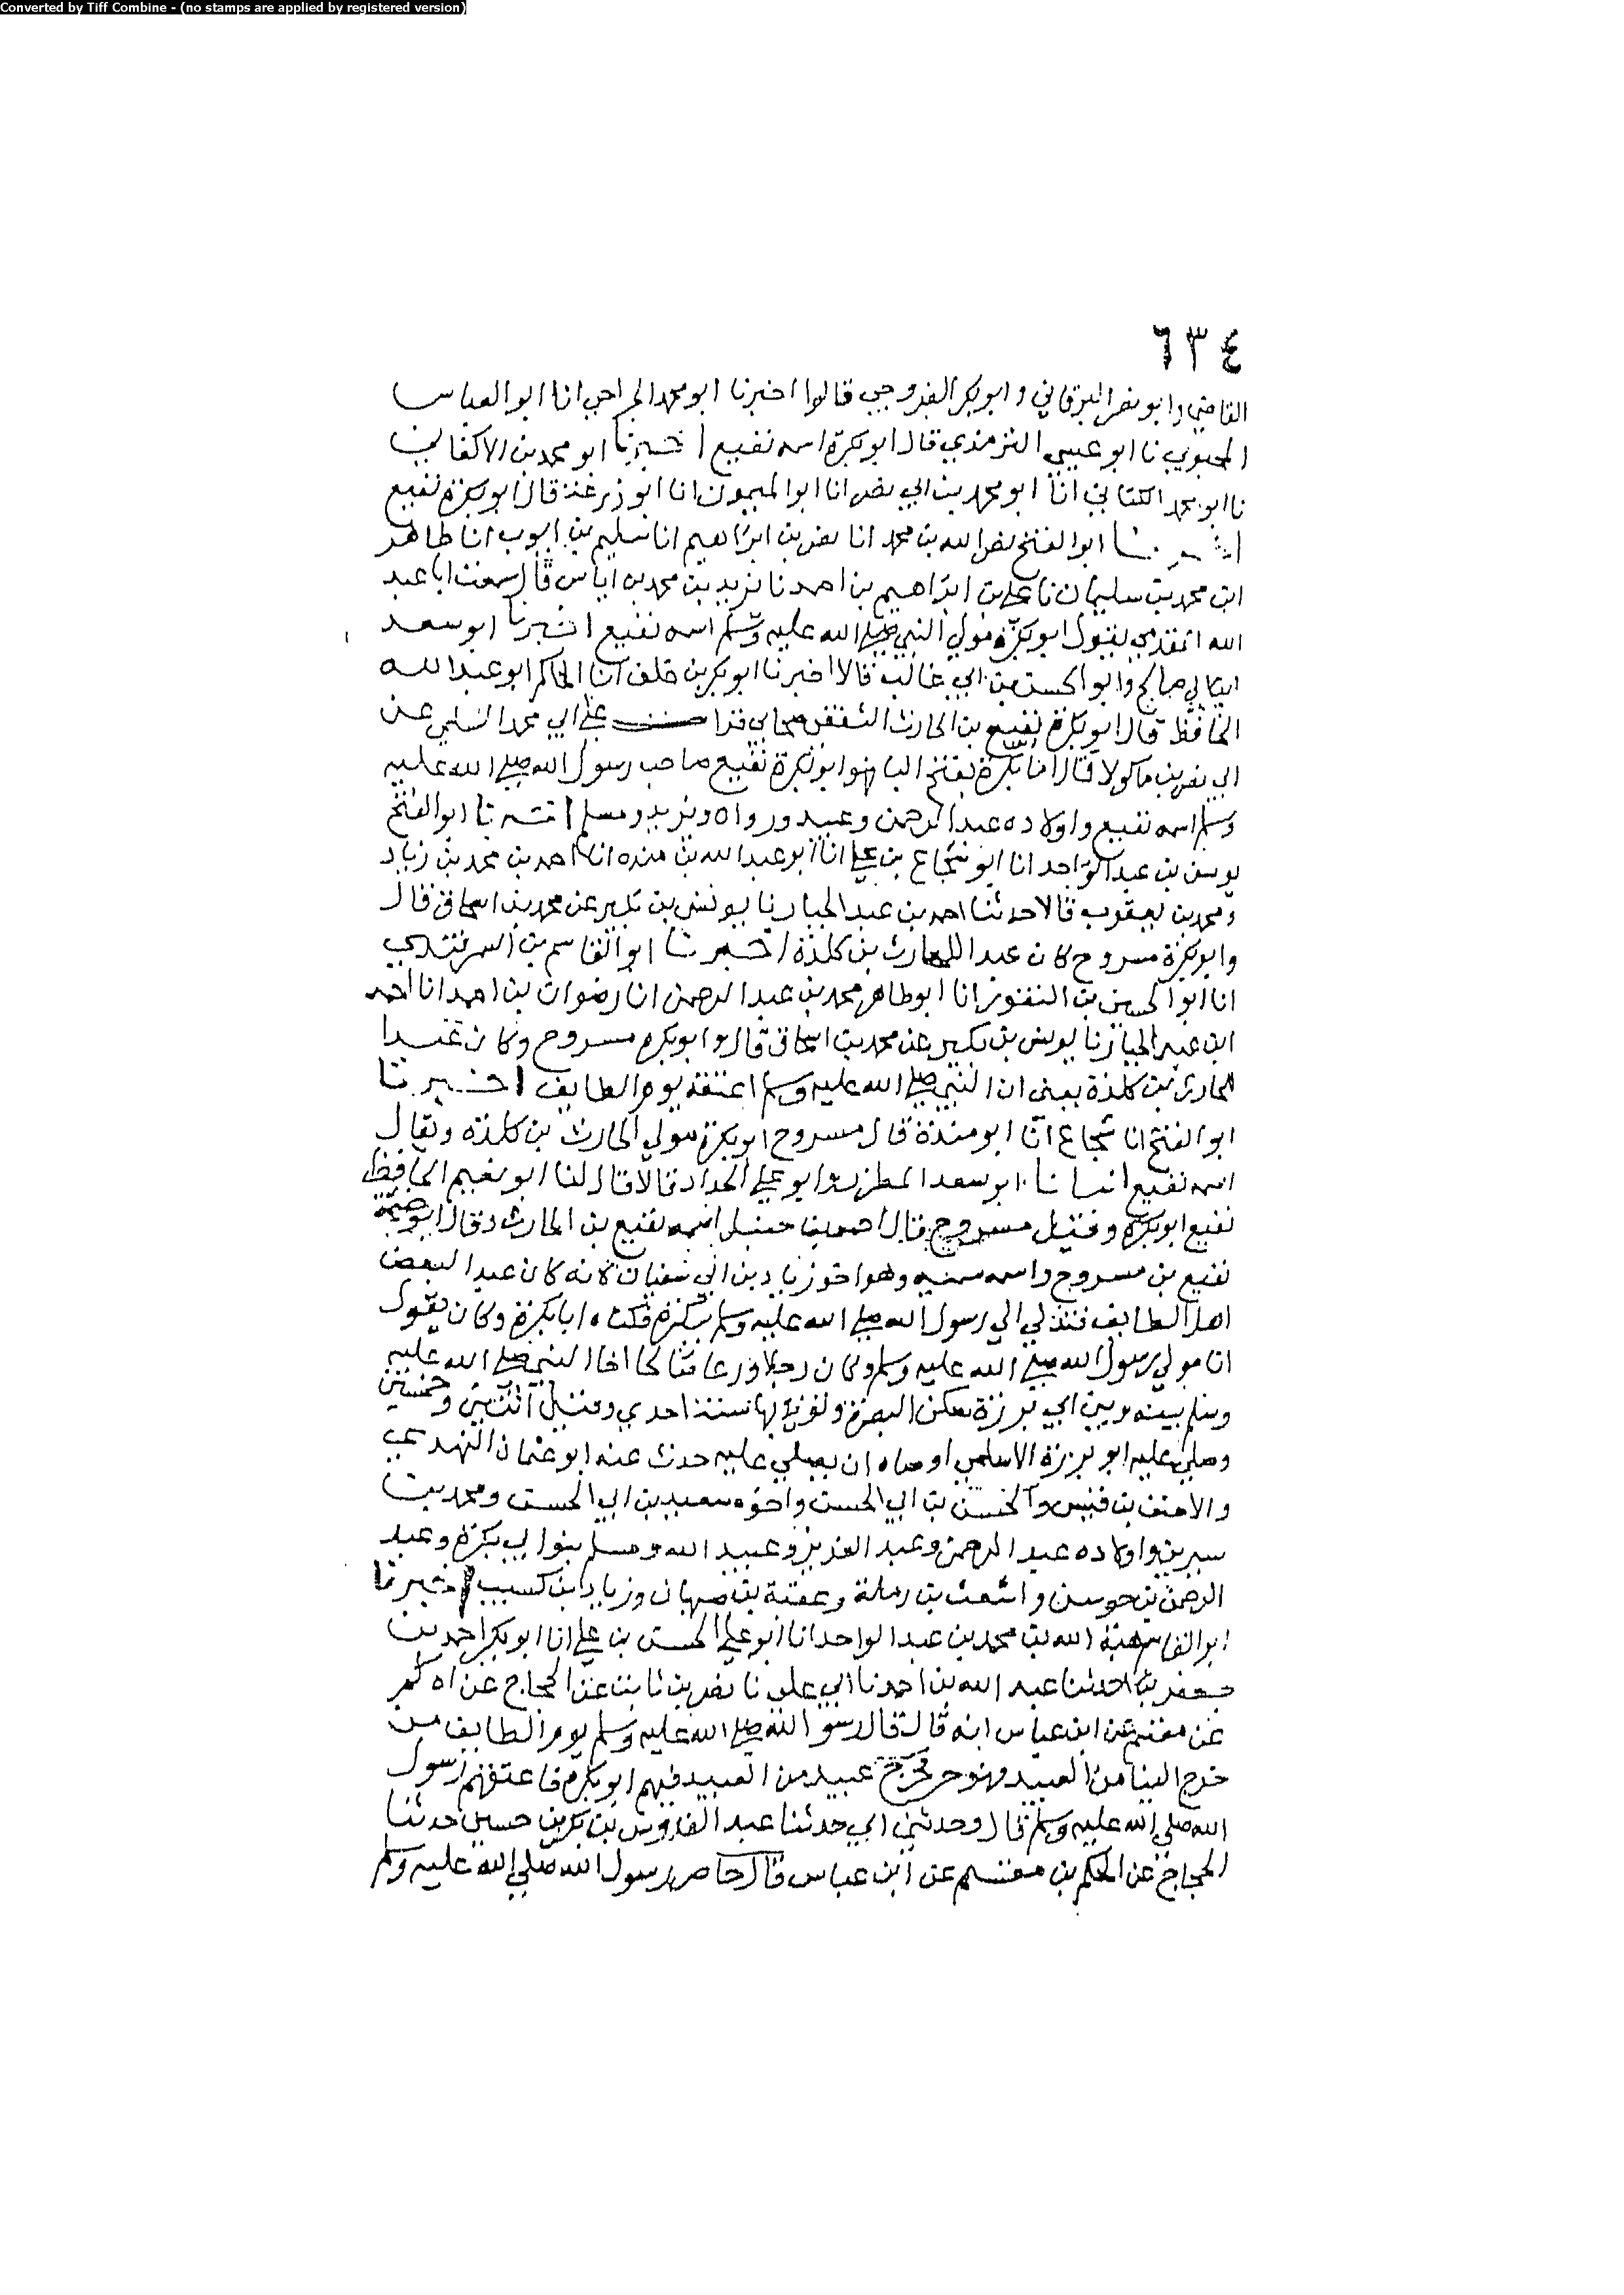 Converted by Tiff Combine - (no stamps are applied by registered version)
٦٣٤
القاضي وابو نصر الترقاني وابو بكر الغورجي قالوا اخبرنا ابو محمد الجراحي انا ابو العباس
المحبوبي نا ابو عيسى الترمذي قال ابو بكرة اسمه نفيع اخبرنا ابو محمد بن الاكفاني
نا ابو محمد الكتاني انا ابو محمد بن ابي نصر انا ابو الميمون انا ابو زرعة قال ابو بكرة نفيع
اخبرنا ابو الفتح نصر الله بن محمد انا نصر بن ابراهيم انا سليم بن ايوب انا طاهر
ابن محمد بن سليمان نا علي بن ابراهيم بن احمد نا يزيد بن محمد بن اياس قال سمعت ابا عبد
الله المقدمي يقول ابو بكرة مولي النبي صلي الله عليه وسلم اسمه نفيع اخبرنا ابو سعد
ابن ابي صالح وابو الحسن بن ابي غالب قالا اخبرنا ابو بكر بن خلف انا الحاكم ابو عبد الله
الحافظ قال ابو بكرة نفيع بن الحارث الثقفي صحابي قرات علي ابي محمد السلمي عن
ابي نصر بن ماكولا قال اما بكرة بفتح البا فهو ابو بكرة نفيع صاحب رسول الله صلي الله عليه
وسلم اسمه نفيع واولاده عبد الرحمن وعبيد ورواد ويزيد ومسلم اخبرنا ابو الفتح
يوسف بن عبد الواحد انا ابو شجاع بن علي انا ابو عبد الله بن منده انا احمد بن محمد بن زياد
ومحمد بن يعقوب قالا حدثنا احمد بن عبد الجبار نا يونس بن بكير عن محمد بن اسحاق قال
وابو بكرة مسروح كان عبدا للحارث بن كلدة اخبرنا ابو القاسم بن السمرقندي
انا ابو الحسين بن النقور انا ابو طاهر محمد بن عبد الرحمن انا رضوان بن احمد انا احمد
ابن عبد الجبار نا يونس بن بكير عن محمد بن اسحاق قال وابو بكرة مسروح وكان عبدا
للحارث بن كلدة يعني ان النبي صلي الله عليه وسلم اعتقه يوم الطايف اخبرنا
ابو الفتح انا شجاع انا ابو مندة قال مسروح ابو بكرة مولي الحارث بن كلدة ويقال
اسمه نفيع انبانا ابو سعد المطرز وابو علي الحداد قالا قال لنا ابو نعيم الحافظ
نفيع ابو بكرة وقيل مسروح قال احمد بن حنبل اسمه نفيع بن الحارث وقال ابو خيثمة
نفيع بن مسروح وامه سميه وهو اخو زياد بن ابي سفيان لامه كان عبدا لبعض
اهل الطايف فتدلي الي رسول الله صلي الله عليه وسلم ببكرة فكناه ابا بكرة وكان يقول
انا مولي رسول الله صلي الله عليه وسلم وكان رجلا ورعا اخا النبي صلي الله عليه
وسلم بينه وبين ابي برزة سكن البصرة وتوفي بها سنة احدي وقيل اثنتين وخمسين
وصلي عليه ابو برزة الاسلمي اوصاه ان يصلي عليه حدث عنه ابو عثمان النهدي
والاحنف بن قيس والحسن بن ابي الحسن واخوه سعيد بن ابي الحسن ومحمد بن
سيرين واولاده عبد الرحمن وعبد العزيز وعبيد الله ومسلم بنوا ابي بكرة وعبد
الرحمن بن جوسن واشعث بن رملة وعقبة بن صهبان وزياد بن كسيب اخبرنا
ابو القاسم هبة الله بن محمد بن عبد الواحد انا ابو علي الحسن بن علي انا ابو بكر احمد بن
جعفر نا حدثنا عبد الله بن احمد نا ابي نا نصر بن ثابت عن الحجاج عن الحكم
عن مقسم عن ابن عباس انه قال قال رسول الله صلي الله عليه وسلم يوم الطايف من
خرج الينا من العبيد فهو حر فخرج عبيد من العبيد فيهم ابو بكرة فاعتقهم رسول
الله صلي الله عليه وسلم قال وحدثني ابي حدثنا عبد القدوس بن بكر بن حسين حدثنا
الحجاج عن الحكم بن مقسم عن ابن عباس قال حاصر رسول الله صلي الله عليه وسلم